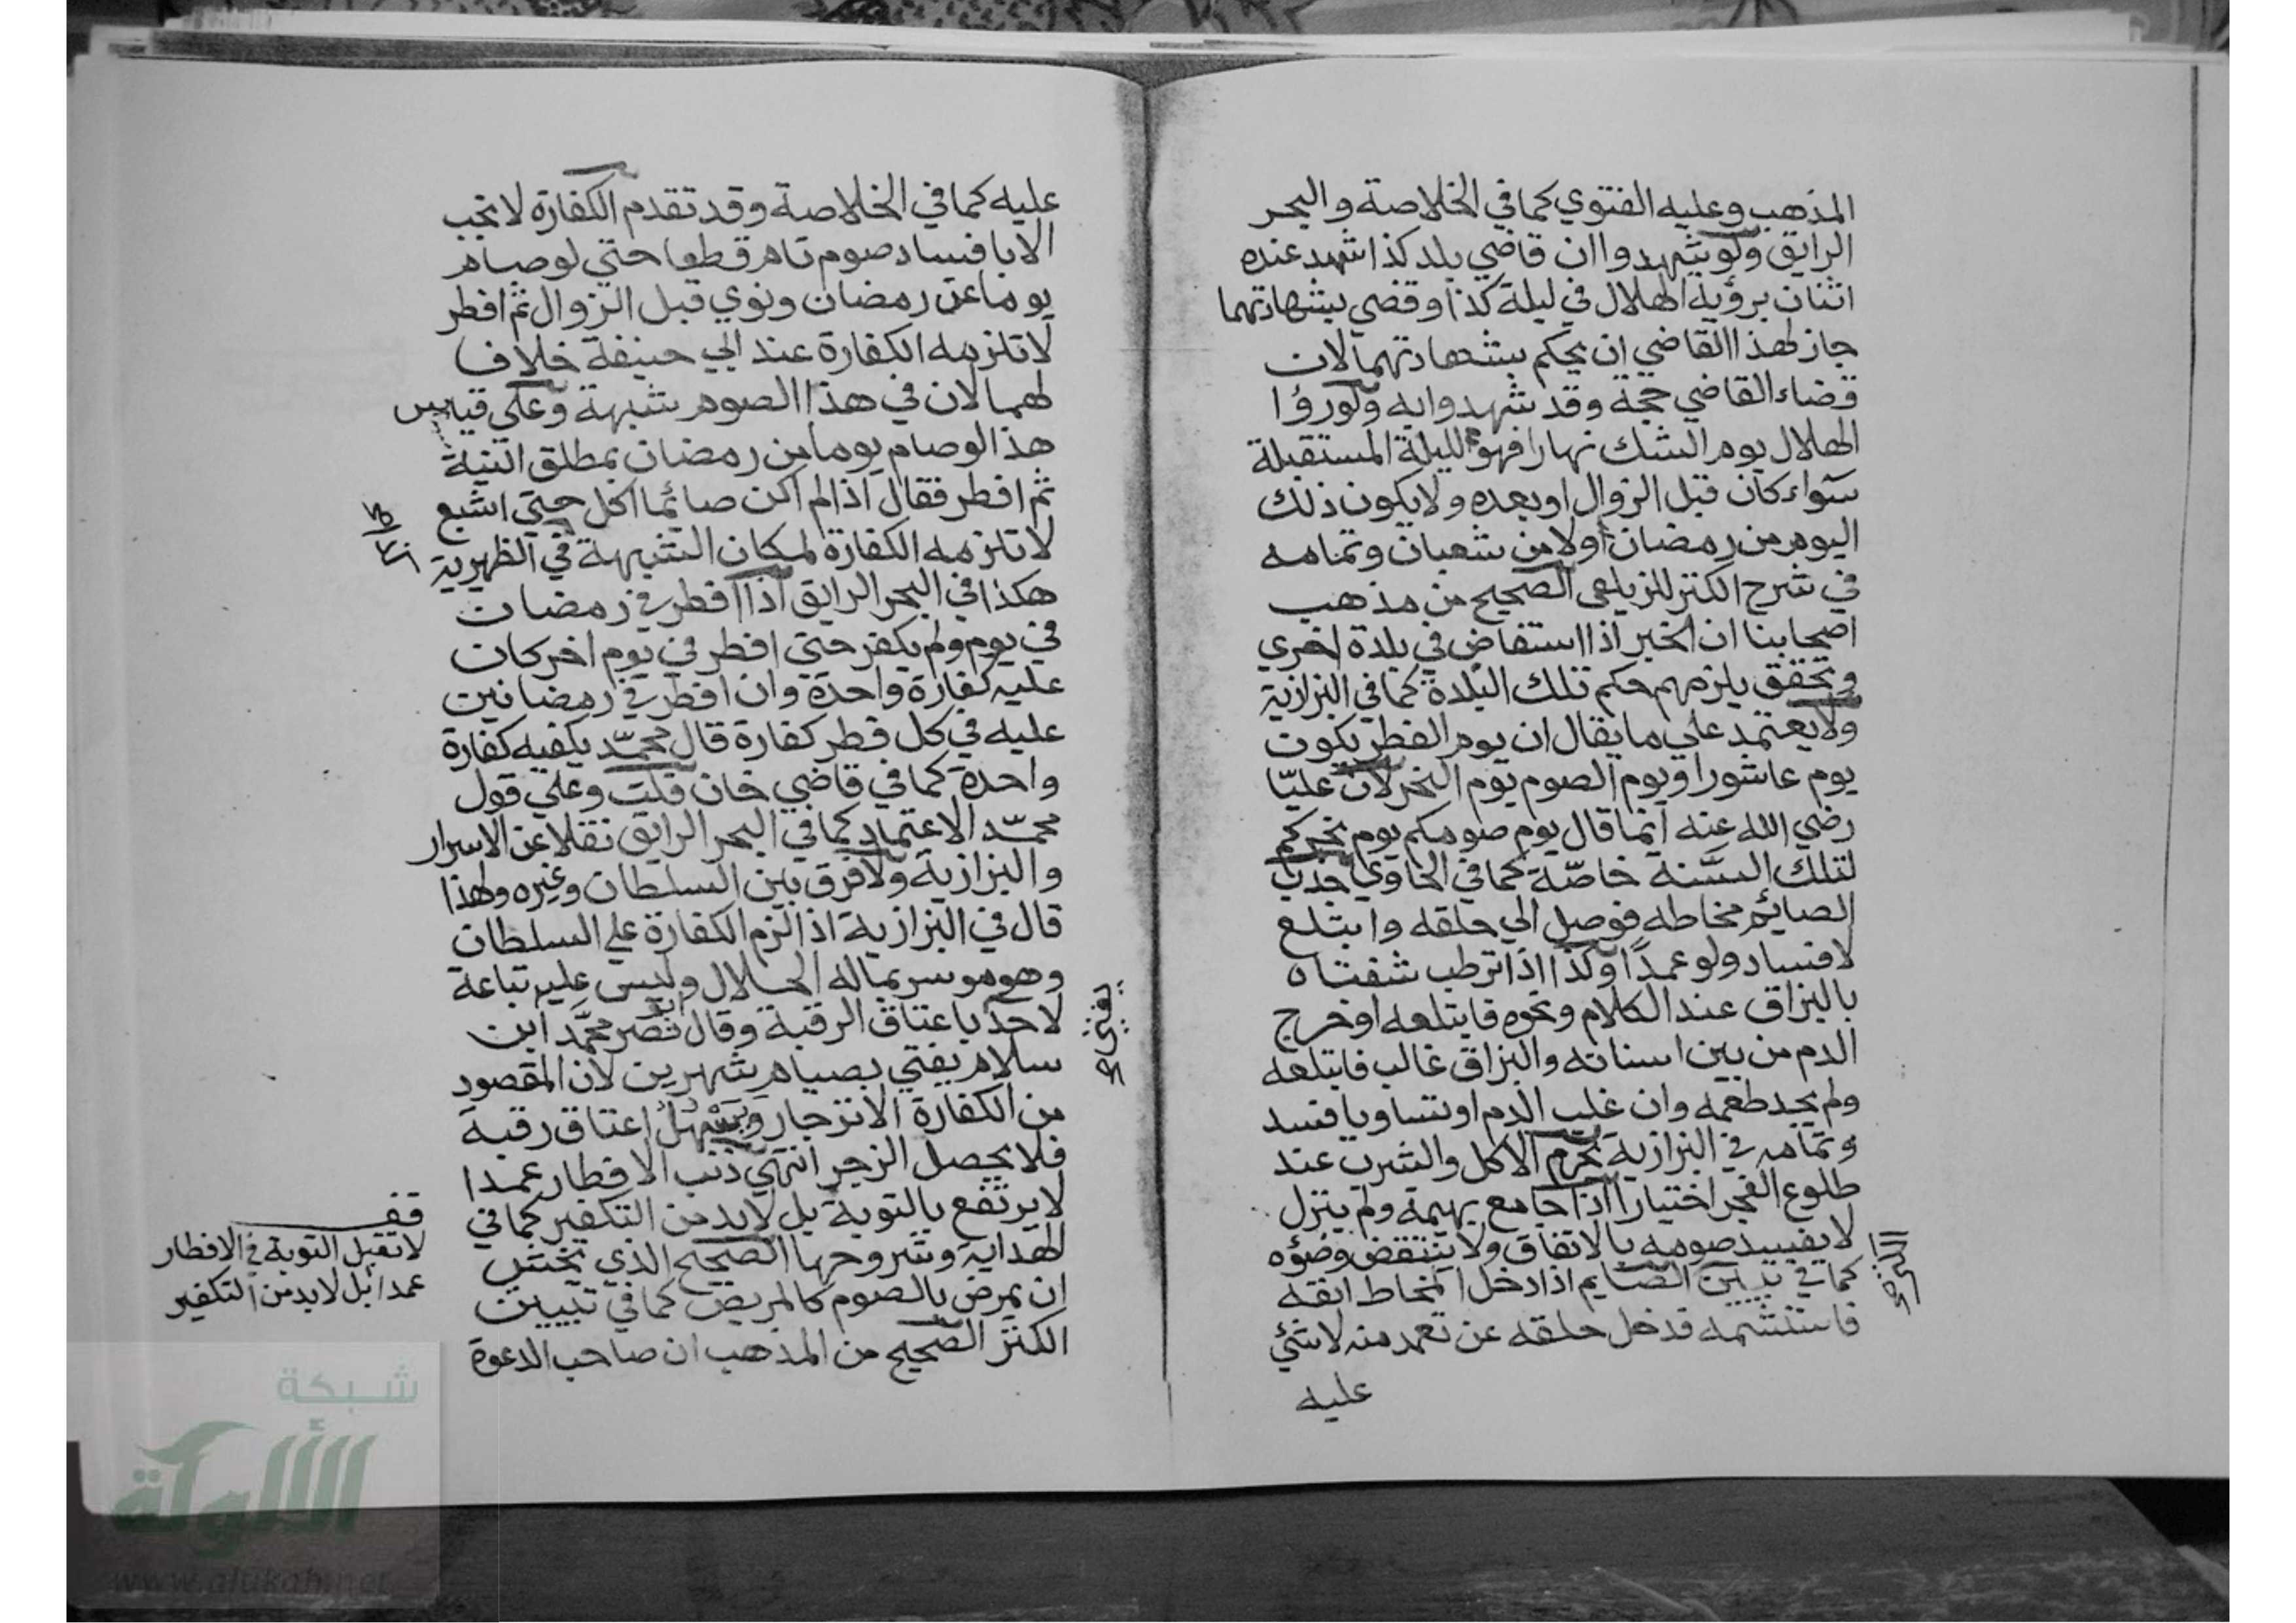 المذهب وعليه الفتوي كما في الخلاصة والبحر
الرايق ولو شهدوا ان قاضي بلد كذا شهد عنده
اثنان برؤية الهلال في ليلة كذا وقضي بشهادتهما
جاز لهذا القاضي ان يحكم بشهادتهما لان
قضاء القاضي حجة وقد شهدوا به ولو رؤا
الهلال يوم الشك نهارا فهو لليلة المستقبلة
سواء كان قبل الزوال او بعده ولا يكون ذلك
اليوم من رمضان او لا من شعبان وتمامه
في شرح الكنز للزيلعي الصحيح من مذهب
اصحابنا ان الخبر اذا استفاض في بلدة اخري
وتحقق يلزمهم حكم تلك البلدة كما في البزازية
ولا يعتمد علي ما يقال ان يوم الفطر يكون
يوم عاشورا ويوم الصوم يوم النحر لان عليّا
رضي الله عنه انما قال يوم صومكم يوم نحركم
لتلك السَّنة خاصّة كما في الحاوي جذب
الصائم مخاطه فوصل الي حلقه وابتلع
لا فساد ولو عمدًا وكذا اذا ترطب شفتاه
بالبزاق عند الكلام ونحوه فابتلعه او خرج
الدم من بين اسنانه والبزاق غالب فابتلعه
ولم يجد طعمه وان غلب الدم او تساويا فسد
وتمامه في البزازية يحرم الاكل والشرب عند
طلوع الفجر اختيارا اذا جامع بهيمة ولم ينزل
لا يفسد صومه بالاتفاق ولا ينتقض وضؤه
كما في الصايم اذا دخل المخاط انفه
فاستشمه فدخل حلقه عن تعمد منه لا شئ
عليه
عليه كما في الخلاصة وقد تقدم الكفارة لا تجب
الا بافساد صوم تام قطعا حتي لو صام
يوما عن رمضان ونوي قبل الزوال ثم افطر
لا تلزمه الكفارة عند ابي حنيفة خلاف
لهما لان في هذا الصوم شبهة وعلي قياس
هذا لو صام يوما من رمضان بمطلق النية
ثم افطر فقال اذا لم اكن صائما اكل حتي اشبع
لا تلزمه الكفارة لمكان الشبهة في الظهيرية
هكذا في البحر الرايق اذا افطر في رمضان
في يوم ولم يكفر حتي افطر في يوم اخر كان
عليه كفارة واحدة وان افطر في رمضانين
عليه في كل فطر كفارة قال محمّد يكفيه كفارة
واحدة كما في قاضي خان قلت وعلي قول
محمّد الاعتماد كما في البحر الرايق نقلا عن الاسرار
والبزازية ولا فرق بين السلطان وغيره ولهذا
قال في البزازية اذا لزم الكفارة علي السلطان
وهو موسر بماله الحلال وليس عليه تباعة
لاحد باعتاق الرقبة وقال ابو نصر محمَّد ابن
سلام يفتي بصيام شهرين لان المقصود
من الكفارة الانزجار ويسهل اعتاق رقبة
فلا يحصل الزجر انتهي ذنب الافطار عمدا
لا يرتفع بالتوبة بل لا بد من التكفير كما في
الهداية وشروحها الصحيح الذي يخشي
ان يمرض بالصوم كالمريض كما في تبيين
الكنز الصحيح من المذهب ان صاحب الدعوة
يفتي
قف
لا تقبل التوبة في الافطار
عمدا بل لا بد من التكفير
شبكة
الألوكة
www.alukah.net